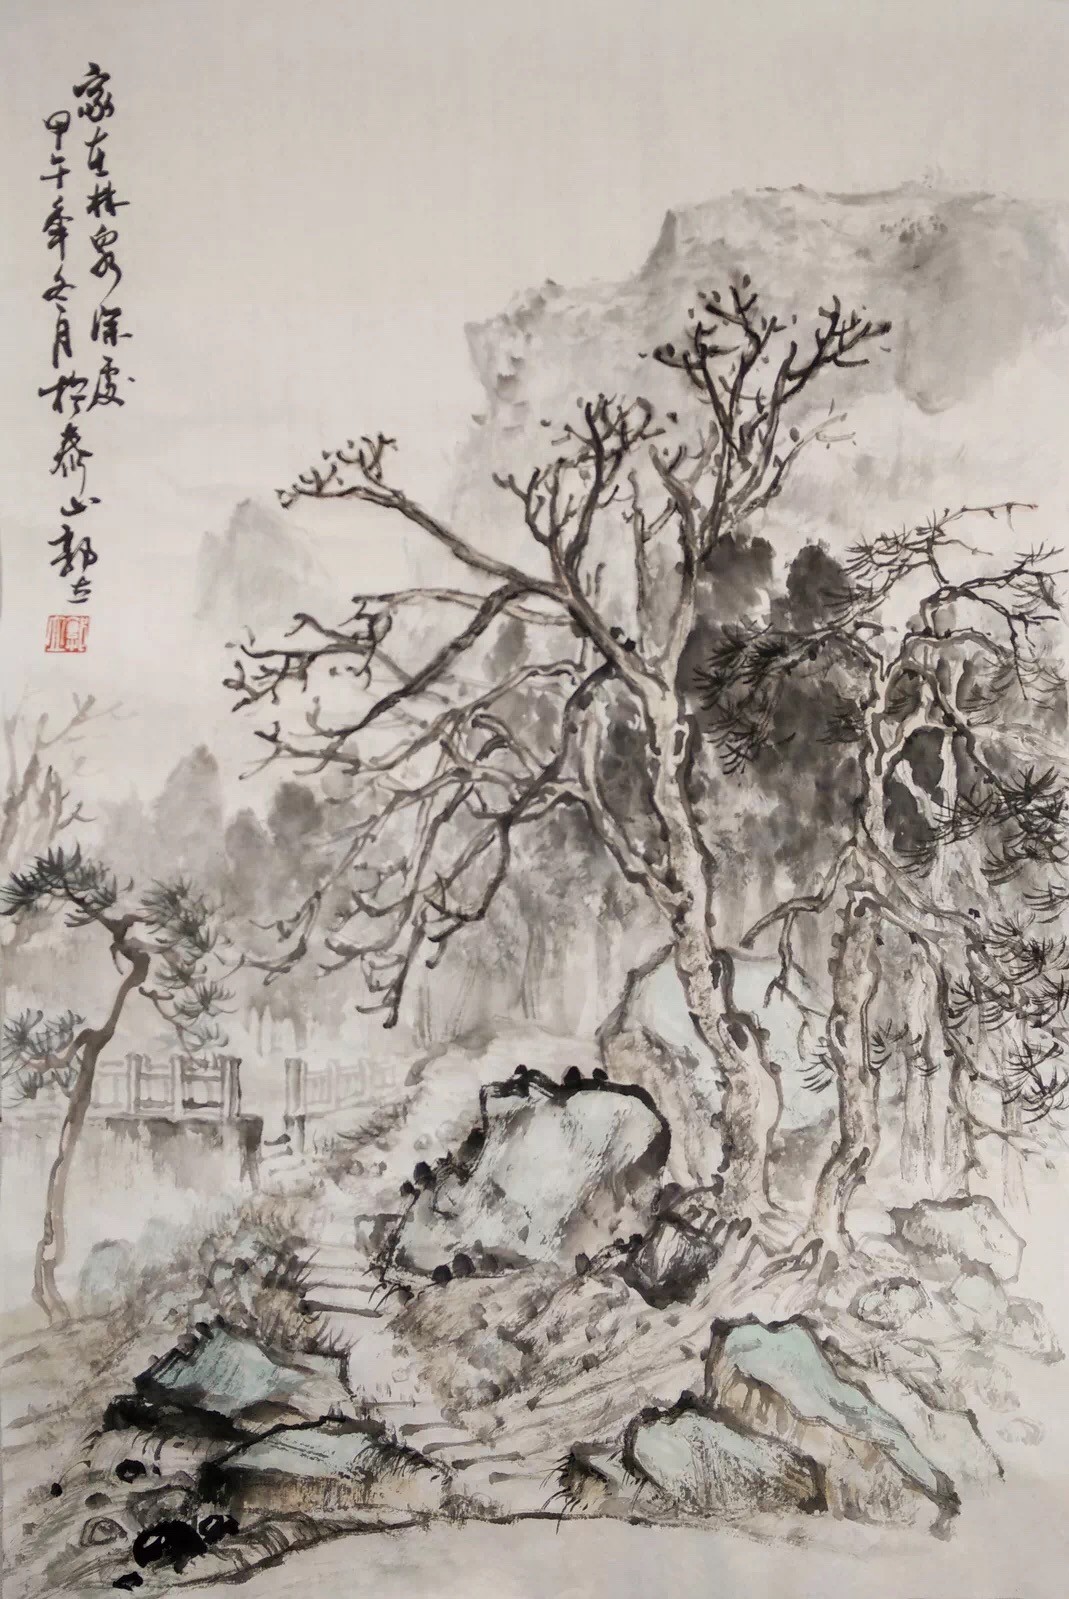 家在林泉深處
甲午年冬月於泰山郭立